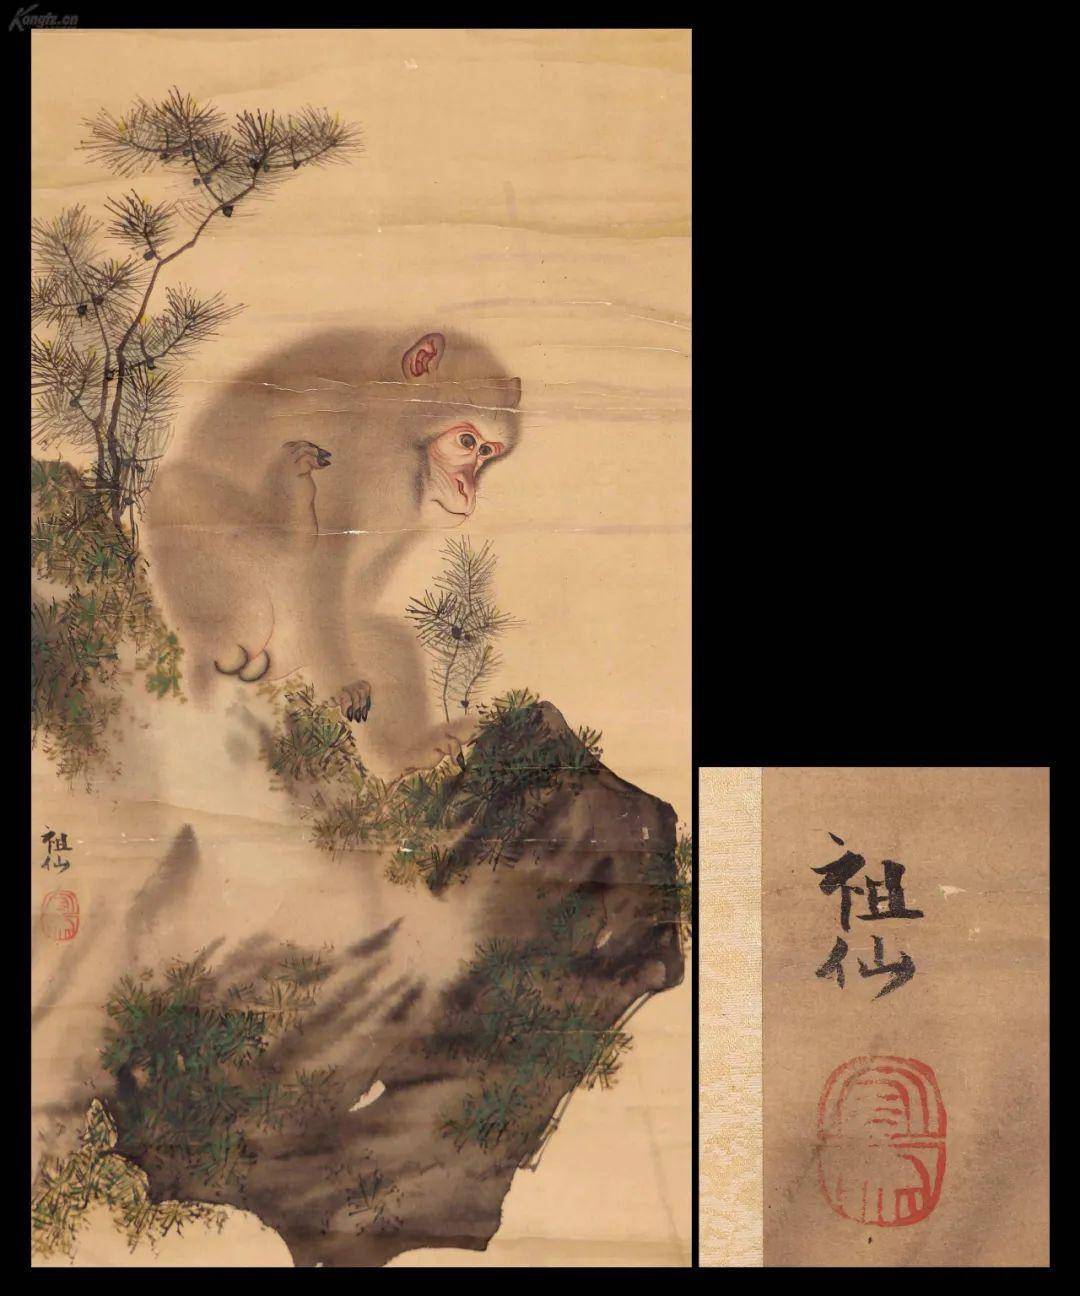 Kongfz.cn
祖
仙
祖
仙